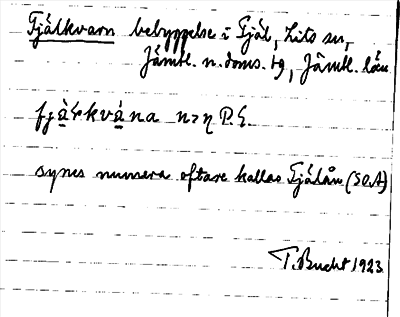 Fjälkvarn bebyggelse i Fjäl, Lits sn,
Jämtl. n. doms. tg, Jämtl. län
fjälkvána
P.E.
synes numera oftare kallas Fjälån (SOÅ)
T. Bucht 1923